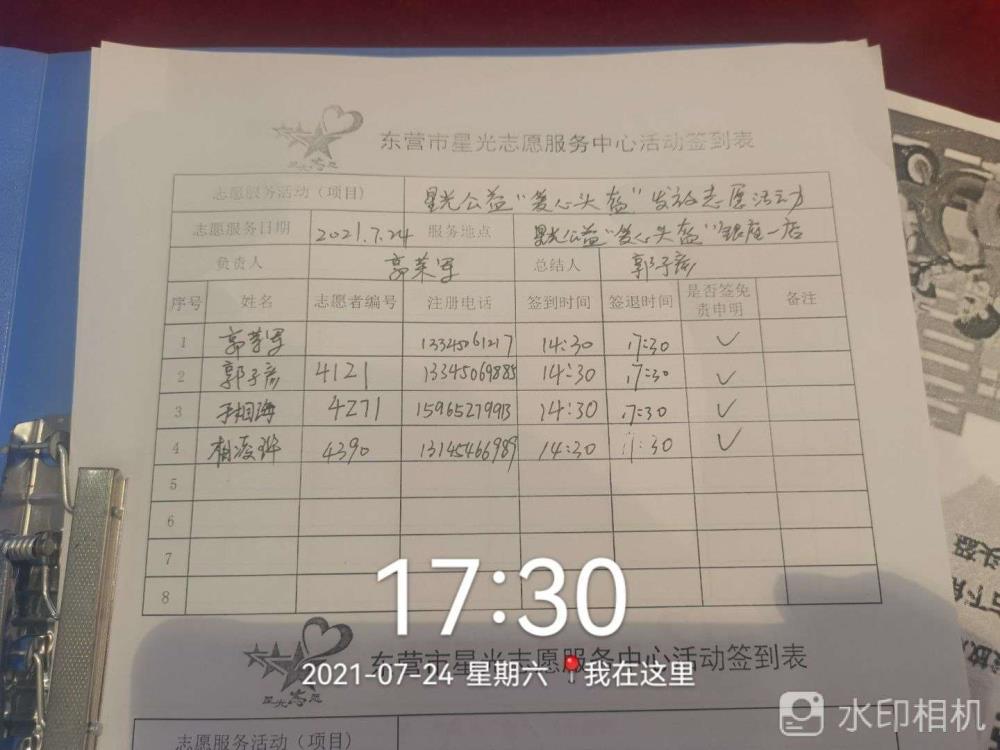 东营市星光志愿服务中心活动签到表
志愿服务活动（项目） 星光公益“爱心头盔”发放志愿活动
志愿服务日期 2021.7.24 服务地点 星光公益“爱心头盔”银座一店
负责人 郭荣军 总结人 郭子彦
序号 姓名 志愿者编号 注册电话 签到时间 签退时间 是否签免责申明 备注
1 郭荣军 13345061217 14:30 17:30 ✓
2 郭子彦 4121 13345069885 14:30 17:30 ✓
3 于相海 4271 15965279913 14:30 17:30 ✓
4 4390 13145466989 14:30 17:30 ✓
5
6
7
8
17:30
东营市星光志愿服务中心活动签到表
2021-07-24 星期六 我在这里
水印相机
志愿服务活动（项目）